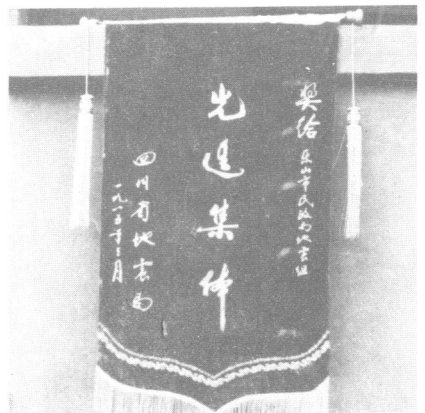 奖给 乐山市民政局地震组
先进集体
四川省地震局
一九八五年三月